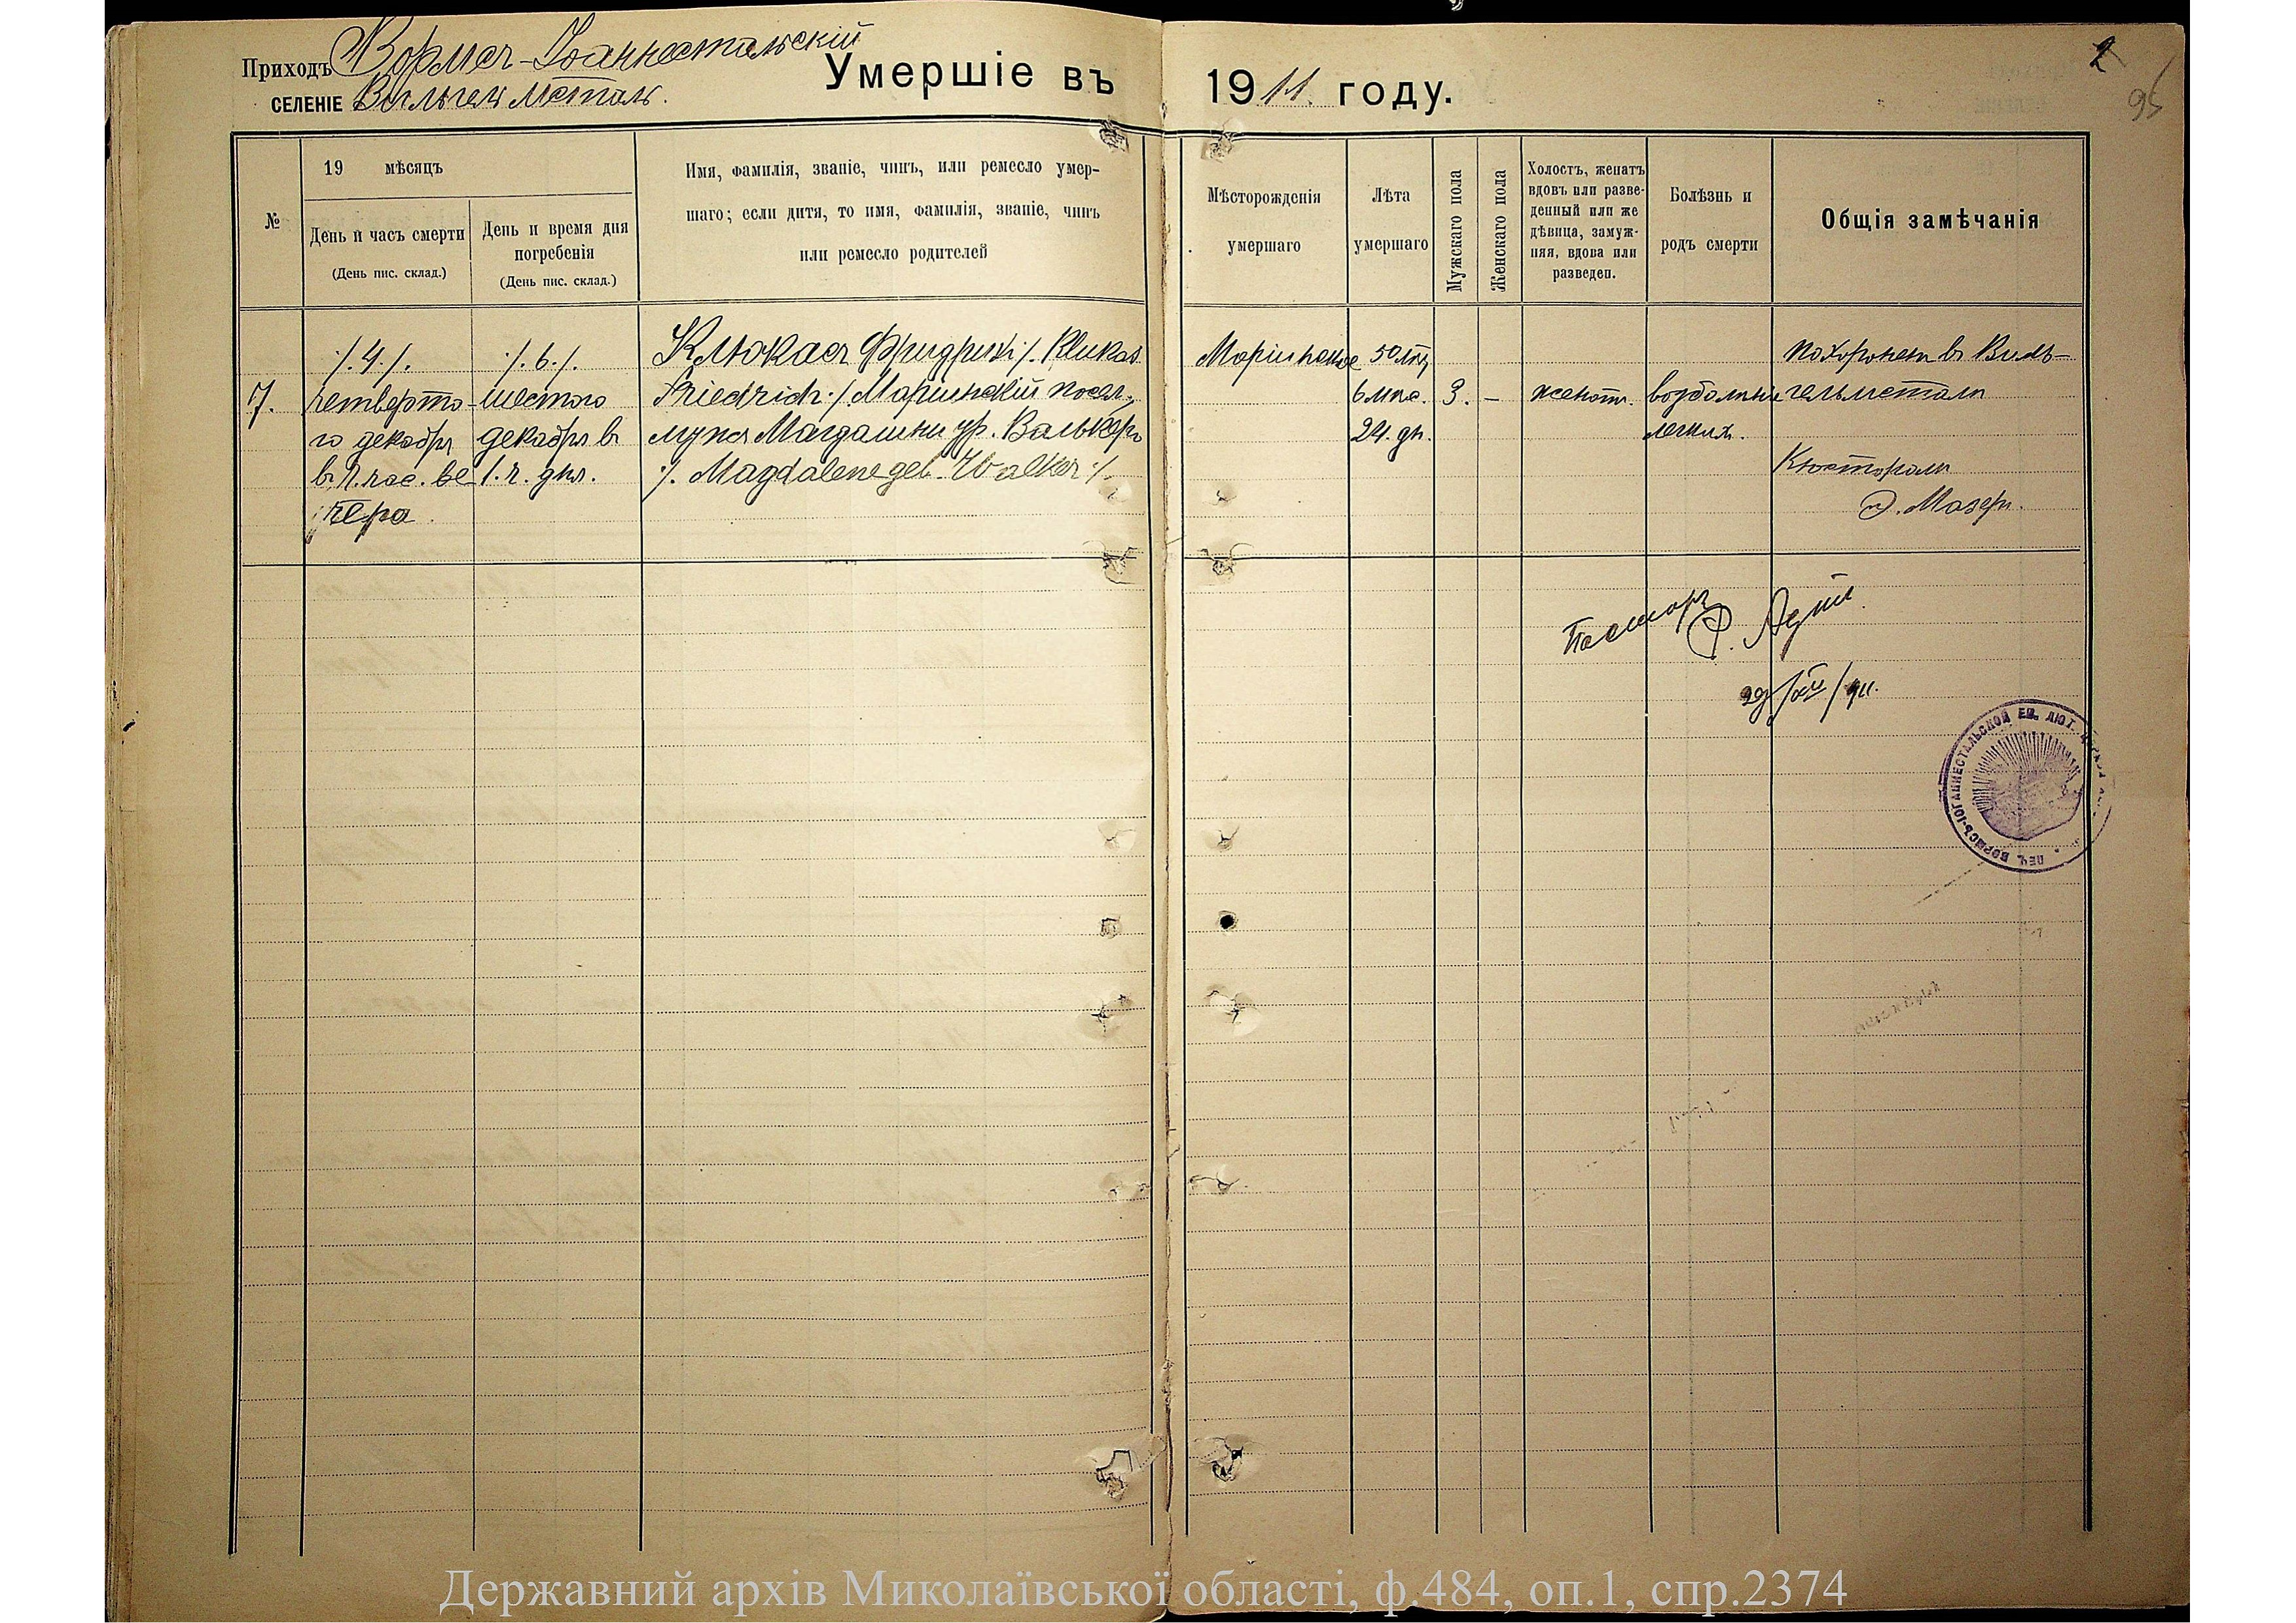 Приходъ Вормсъ-Іоаннестальскій
СЕЛЕНІЕ Вильгельмсталь.
Умершіе въ 1911 году.
2
95
№
19 мѣсяцъ
День и часъ смерти
(День пис. склад.)
День и время дня
погребенія
(День пис. склад.)
Имя, фамилія, званіе, чинъ, или ремесло умер-
шаго; если дитя, то имя, фамилія, званіе, чинъ
или ремесло родителей
Мѣсторожденія
умершаго
Лѣта
умершаго
Мужскаго пола
Женскаго пола
Холостъ, женатъ
вдовъ или разве-
денный или же
дѣвица, замуж-
няя, вдова или
разведен.
Болѣзнь и
родъ смерти
Общія замѣчанія
7.
/.4./.
четверто-
го декабря
въ 7. час. ве
чера.
/.6./.
шестого
декабря въ
1. ч. дня.
Клюкасъ Фридрихъ /. Klukas
Friedrich ./. Маріинскій посел.,
мужъ Магдалины ур. Валькеръ
/. Magdalene geb. Walker ./.
Маріинское
50 лѣтъ
6 мѣс.
24. дн.
3.
-
женатъ.
легкихъ.
похороненъ въ Виль-
гельмсталѣ
Кюстеромъ
Э. Мазеръ.
Пасторъ
29/XII/911.
ПЕЧ. ВОРМСЪ-ІОГАННЕСТАЛЬСКОЙ ЕВ. ЛЮТ.
Державний архів Миколаївської області, ф.484, оп.1, спр.2374